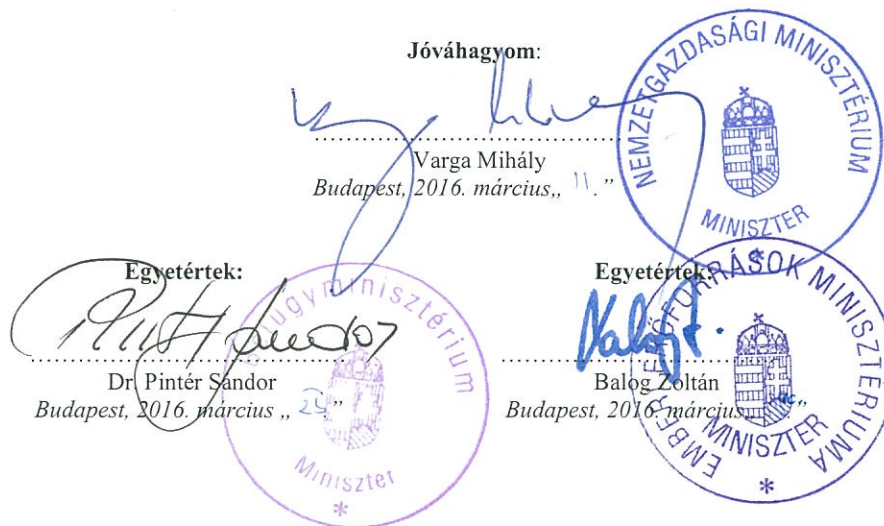 Jóváhagyom:
Varga Mihály
Budapest, 2016. március„ 11.”
NEMZETGAZDASÁGI MINISZTÉRIUM
MINISZTER
Egyetértek:
Dr. Pintér Sándor
Budapest, 2016. március „ ”
Belügyminisztérium
Miniszter
*
Egyetértek:
Balog Zoltán
Budapest, 2016. március„ ”
EMBERI ERŐFORRÁSOK MINISZTÉRIUMA
MINISZTER
*